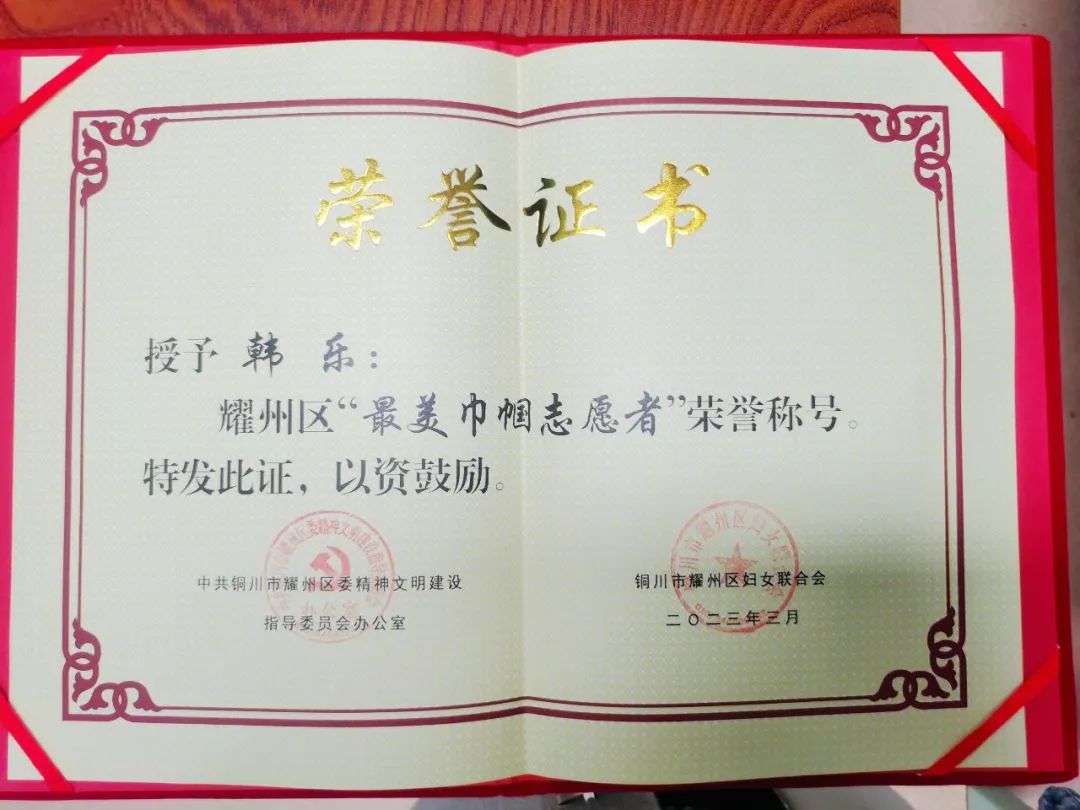 荣誉证书
授予 韩 乐：
耀州区“最美巾帼志愿者”荣誉称号。
特发此证，以资鼓励。
中共铜川市耀州区委精神文明建设
指导委员会办公室
铜川市耀州区妇女联合会
二〇二三年三月